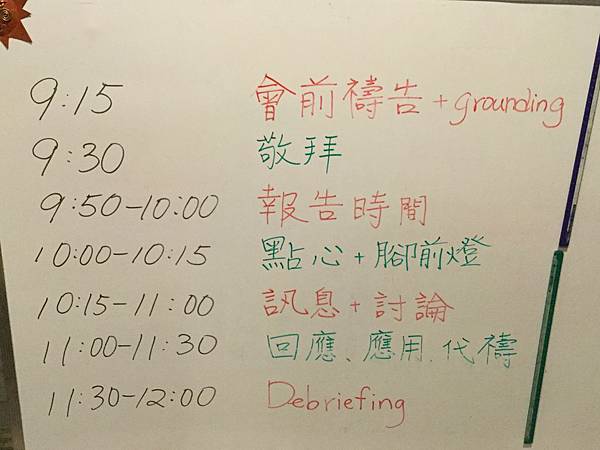 9:15 會前禱告+grounding
9:30 敬拜
9:50-10:00 報告時間
10:00-10:15 點心+腳前燈
10:15-11:00 訊息+討論
11:00-11:30 回應、應用、代禱
11:30-12:00 Debriefing